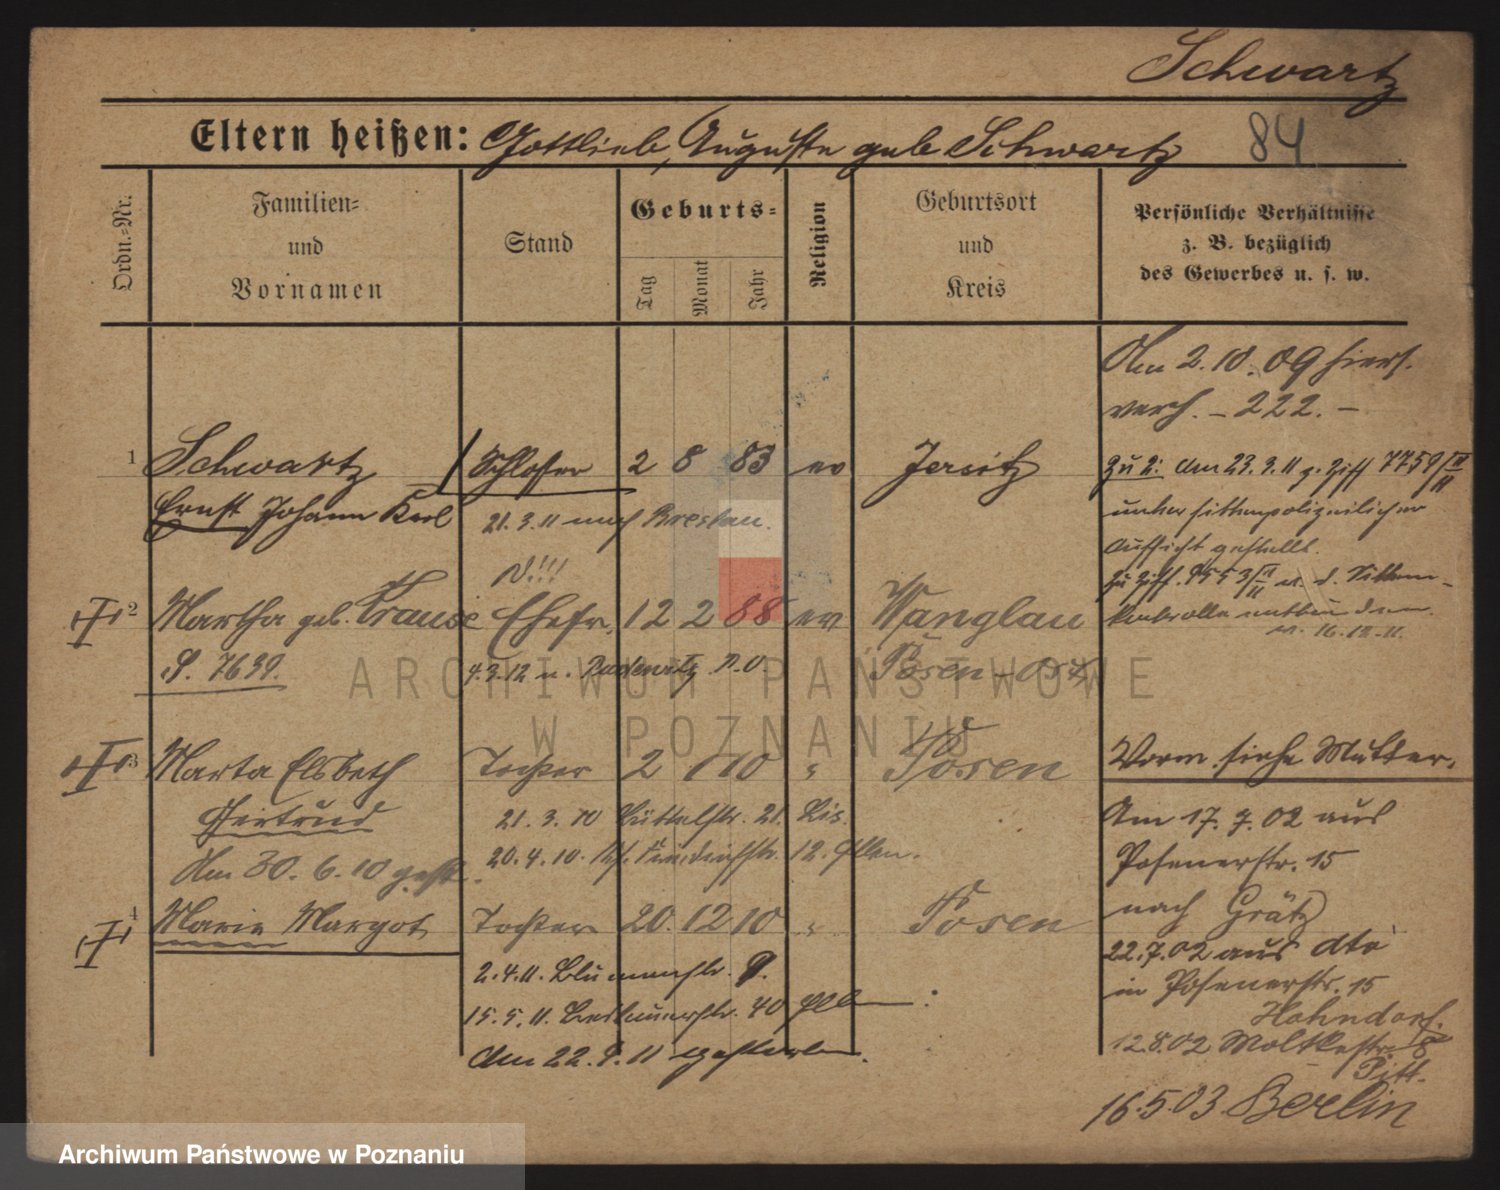 Schwartz
Eltern heißen: Gottlieb, Auguste geb Schwartz 84
Ordn.=Nr.
Familien=
und
Vornamen
Stand
Geburts=
Tag
Monat
Jahr
Religion
Geburtsort
und
Kreis
Persönliche Verhältnisse
z. B. bezüglich
des Gewerbes u. s. w.
Am 2.10.09 hiers.
verh. – 222. –
1 Schwartz Schlosser 2 8 83 ev Jersitz
Ernst Johann Karl
21.3.11 nach Breslau.
zu 2: am 23.3.11 z. Ziff 7759
unter sittenpolizeilicher
Aufsicht gestellt.
2 Martha geb. Krause Ehefr. 12 2 88 ev Wanglau
P. 7639. 4.3.12 n. Pudewitz P.O. Posen-Ost
16.12.11.
3 Marta Elsbeth Tochter 2 1 10 " Posen
Gertrud
21.3.10 Büttelstr. 21. Bis.
20.4.10. Friedrichstr. 12.
Am 30.6.10 gest.
Vorm. siehe Mutter.
4 Marie Margot Tochter 20. 12 10 " Posen
2.4.11. Blumenstr. 9.
15.5.11. 40
Am 22.9.11 gestorben.
Am 17.7.02 aus
Posenerstr. 15
nach Grätz
22.7.02 aus dto
in Posenerstr. 15
Hohndorf.
12.8.02 Moltkestr. 8
Pitt.
16.5.03 Berlin
ARCHIWUM PAŃSTWOWE
W POZNANIU
Archiwum Państwowe w Poznaniu